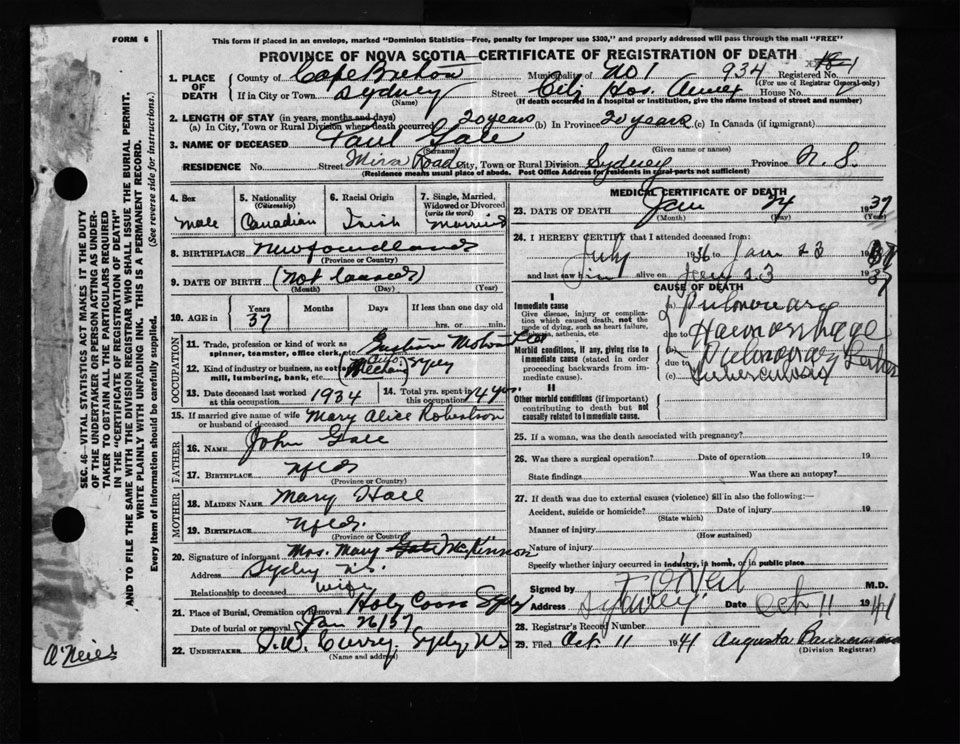 FORM 6
This form if placed in an envelope, marked "Dominion Statistics—Free, penalty for improper use $300," and properly addressed will pass through the mail "FREE"
PROVINCE OF NOVA SCOTIA—CERTIFICATE OF REGISTRATION OF DEATH
1. PLACE OF DEATH County of Cape Breton Municipality of No 1 934 Registered No.
(For use of Registrar General only)
If in City or Town Sydney Street City Hos. Annex House No.
(Name) (If death occurred in a hospital or institution, give the name instead of street and number)
2. LENGTH OF STAY (in years, months and days)
(a) In City, Town or Rural Division where death occurred 20 years (b) In Province 20 years (c) In Canada (if immigrant)
3. NAME OF DECEASED Paul Gale
(Surname) (Given name or names)
RESIDENCE No. Street Mira Road City, Town or Rural Division Sydney Province N. S.
(Residence means usual place of abode. Post Office Address for residents in rural parts not sufficient)
4. Sex 5. Nationality (Citizenship) 6. Racial Origin 7. Single, Married, Widowed or Divorced (write the word)
male Canadian Irish Married
8. BIRTHPLACE Newfoundland
(Province or Country)
9. DATE OF BIRTH (not known)
(Month) (Day) (Year)
10. AGE in Years Months Days If less than one day old
37 hrs. or min.
OCCUPATION
11. Trade, profession or kind of work as spinner, teamster, office clerk, etc.
12. Kind of industry or business, as cotton mill, lumbering, bank, etc.
13. Date deceased last worked at this occupation 1934 14. Total yrs. spent in this occupation 4 yrs.
15. If married give name of wife or husband of deceased Mary Alice Robertson
FATHER
16. NAME John Gale
17. BIRTHPLACE Nfld
(Province or Country)
MOTHER
18. MAIDEN NAME Mary Hall
19. BIRTHPLACE Nfld.
(Province or Country)
20. Signature of informant Mrs. Mary Gale McKinnon
Address Sydney N.S.
Relationship to deceased wife
21. Place of Burial, Cremation or Removal Holy Cross Sydney
Date of burial or removal Jan 26/37
22. UNDERTAKER Curry, Sydney, N.S
(Name and address)
MEDICAL CERTIFICATE OF DEATH
23. DATE OF DEATH Jan 24 1937
(Month) (Day) (Year)
24. I HEREBY CERTIFY that I attended deceased from:
July 1936 to Jan 23 1937
and last saw him alive on Jan 23 37
CAUSE OF DEATH
I
Immediate cause
Give disease, injury or complication which caused death, not the mode of dying, such as heart failure, asphyxia, asthenia, etc.
(a) Pulmonary
due to Haemorrhage
Morbid conditions, if any, giving rise to immediate cause (stated in order proceeding backwards from immediate cause).
(b) Pulmonary
due to
(c) Tuberculosis
II
Other morbid conditions (if important) contributing to death but not causally related to immediate cause.
25. If a woman, was the death associated with pregnancy?
26. Was there a surgical operation? Date of operation 19
State findings Was there an autopsy?
27. If death was due to external causes (violence) fill in also the following:—
Accident, suicide or homicide? Date of injury 19
(State which)
Manner of injury
(How sustained)
Nature of injury
Specify whether injury occurred in industry, in home, or in public place
Signed by F O'Neil M.D.
Address Sydney Date Oct 11 1941
28. Registrar's Record Number
29. Filed Oct. 11 1941 Augusta
(Division Registrar)
SEC. 46—VITAL STATISTICS ACT MAKES IT THE DUTY
OF THE UNDERTAKER OR PERSON ACTING AS UNDERTAKER TO OBTAIN ALL THE PARTICULARS REQUIRED
IN THE "CERTIFICATE OF REGISTRATION OF DEATH"
AND TO FILE THE SAME WITH THE DIVISION REGISTRAR WHO SHALL ISSUE THE BURIAL PERMIT.
WRITE PLAINLY WITH UNFADING INK. THIS IS A PERMANENT RECORD.
Every item of information should be carefully supplied. (See reverse side for instructions.)
O'Neil